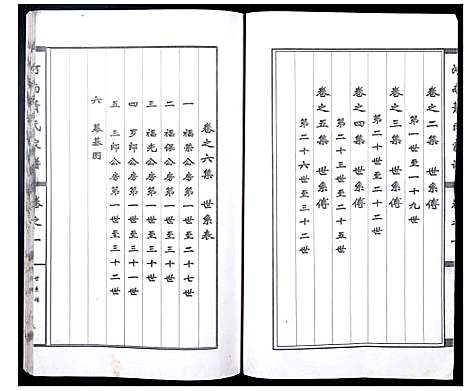 卷之二集 世系傳
第一世至一十九世
卷之三集 世系傳
第二十世至二十二世
卷之四集 世系傳
第二十三世至二十五世
卷之五集 世系傳
第二十六世至三十二世
卷之六集 世系表
一 福榮公房第一世至二十七世
二 福保公房第一世至三十世
三 福光公房第一世至三十世
四 罗郎公房第一世至三十一世
五 三郎公房第一世至三十二世
六 墓墓图
卷之一
世系傳